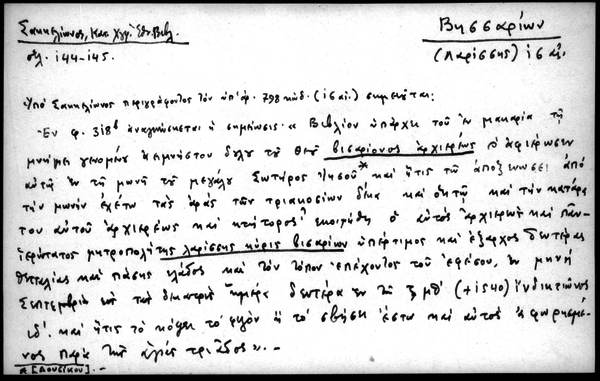 Σακκελίωνος, Κατ. Χγρ. Ἐθν. Βιβλ.
σελ. 144-145.
Βησσαρίων
(Λαρίσσης) ις αἰ.
Ὑπὸ Σακκελίωνος περιγράφοντος τὸν ὑπ' ἀρ. 798 κώδ. (ις αἰ.) σημειοῦται:
Ἐν φ. 318β ἀναγινώσκεται ἡ σημείωσις· « Βιβλίον ὑπάρχει τοῦ ἐν μακαρία τῆ
μνήμει γενομένου ἀειμνήστου δούλου τοῦ θεοῦ βισαρίονος ἀρχιερέως ὁ ἀφιέρωσεν
αὐτῶ ἐν τῆ μωνῆ τοῦ μεγάλου Σωτῆρος Ἰησοῦ* καὶ ἥτις τῶ ἀποξενώσει ἀπὸ
τὴν μωνὴν ἐχέτω τὰς ἀρὰς τῶν τριακοσίων δέκα καὶ ὀκτῶ καὶ τὴν κατάρα
του αὐτοῦ ἀρχιερέως καὶ κτήτορος· ἐκοιμήθη ὁ αὐτὸς ἀρχιερεὺς καὶ παν-
ιερώτατος μητροπολίτης λαρίσσης κύρις βισαρίων ὑπέρτιμος καὶ ἔξαρχος δευτέρας
θετταλίας καὶ πάσης ἑλάδος καὶ τὸν τόπον ἐπέχοντος τοῦ ἐφέσου, ἐν μηνὴ
Σεπτεμβρίω εἰς τὰς δεκατρεῖς ἡμέρα δευτέρα ἐν ἔτι ζμθ' (+1540) ἰνδικτιῶνος
ιδ'. καὶ ἥτις τὸ κόψει τὸ φύλον ἢ τὸ σβήσει ἔστω καὶ αὐτὸς ἀφωρησμέ-
νος παρὰ τῆς ἁγίας τριάδος ». -
* [Δουσίκου]. -